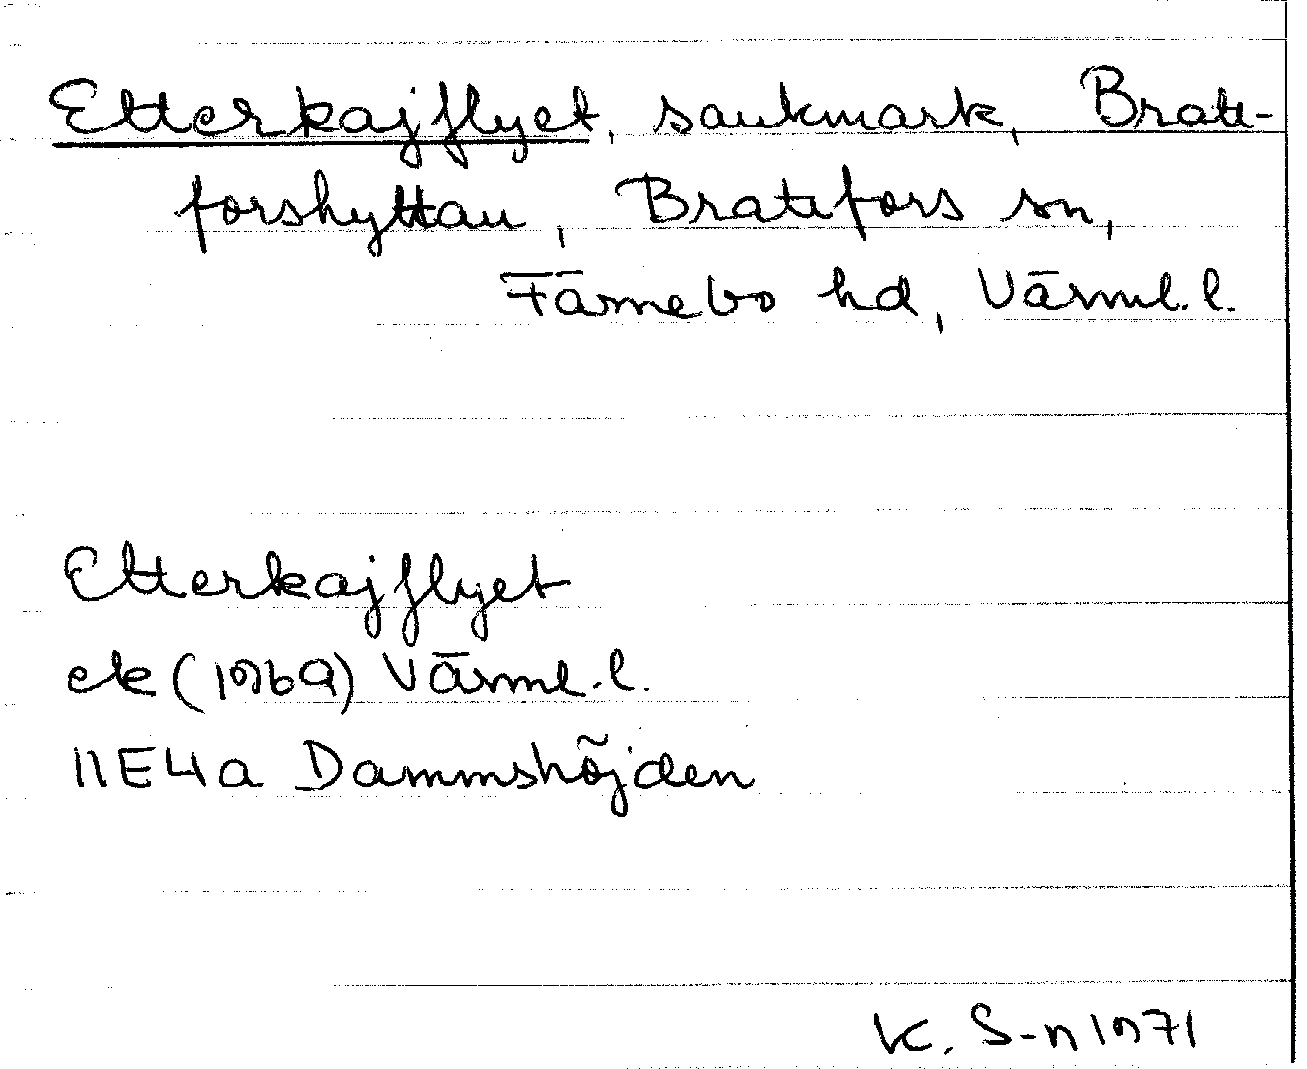 Etterkajflyet, sankmark, Bratt-
forshyttan, Brattfors sn,
Färnebo hd, Värml. l.
Etterkajflyet
ek (1969) Värml. l.
11E4a Dammshöjden
K. S-n 1971